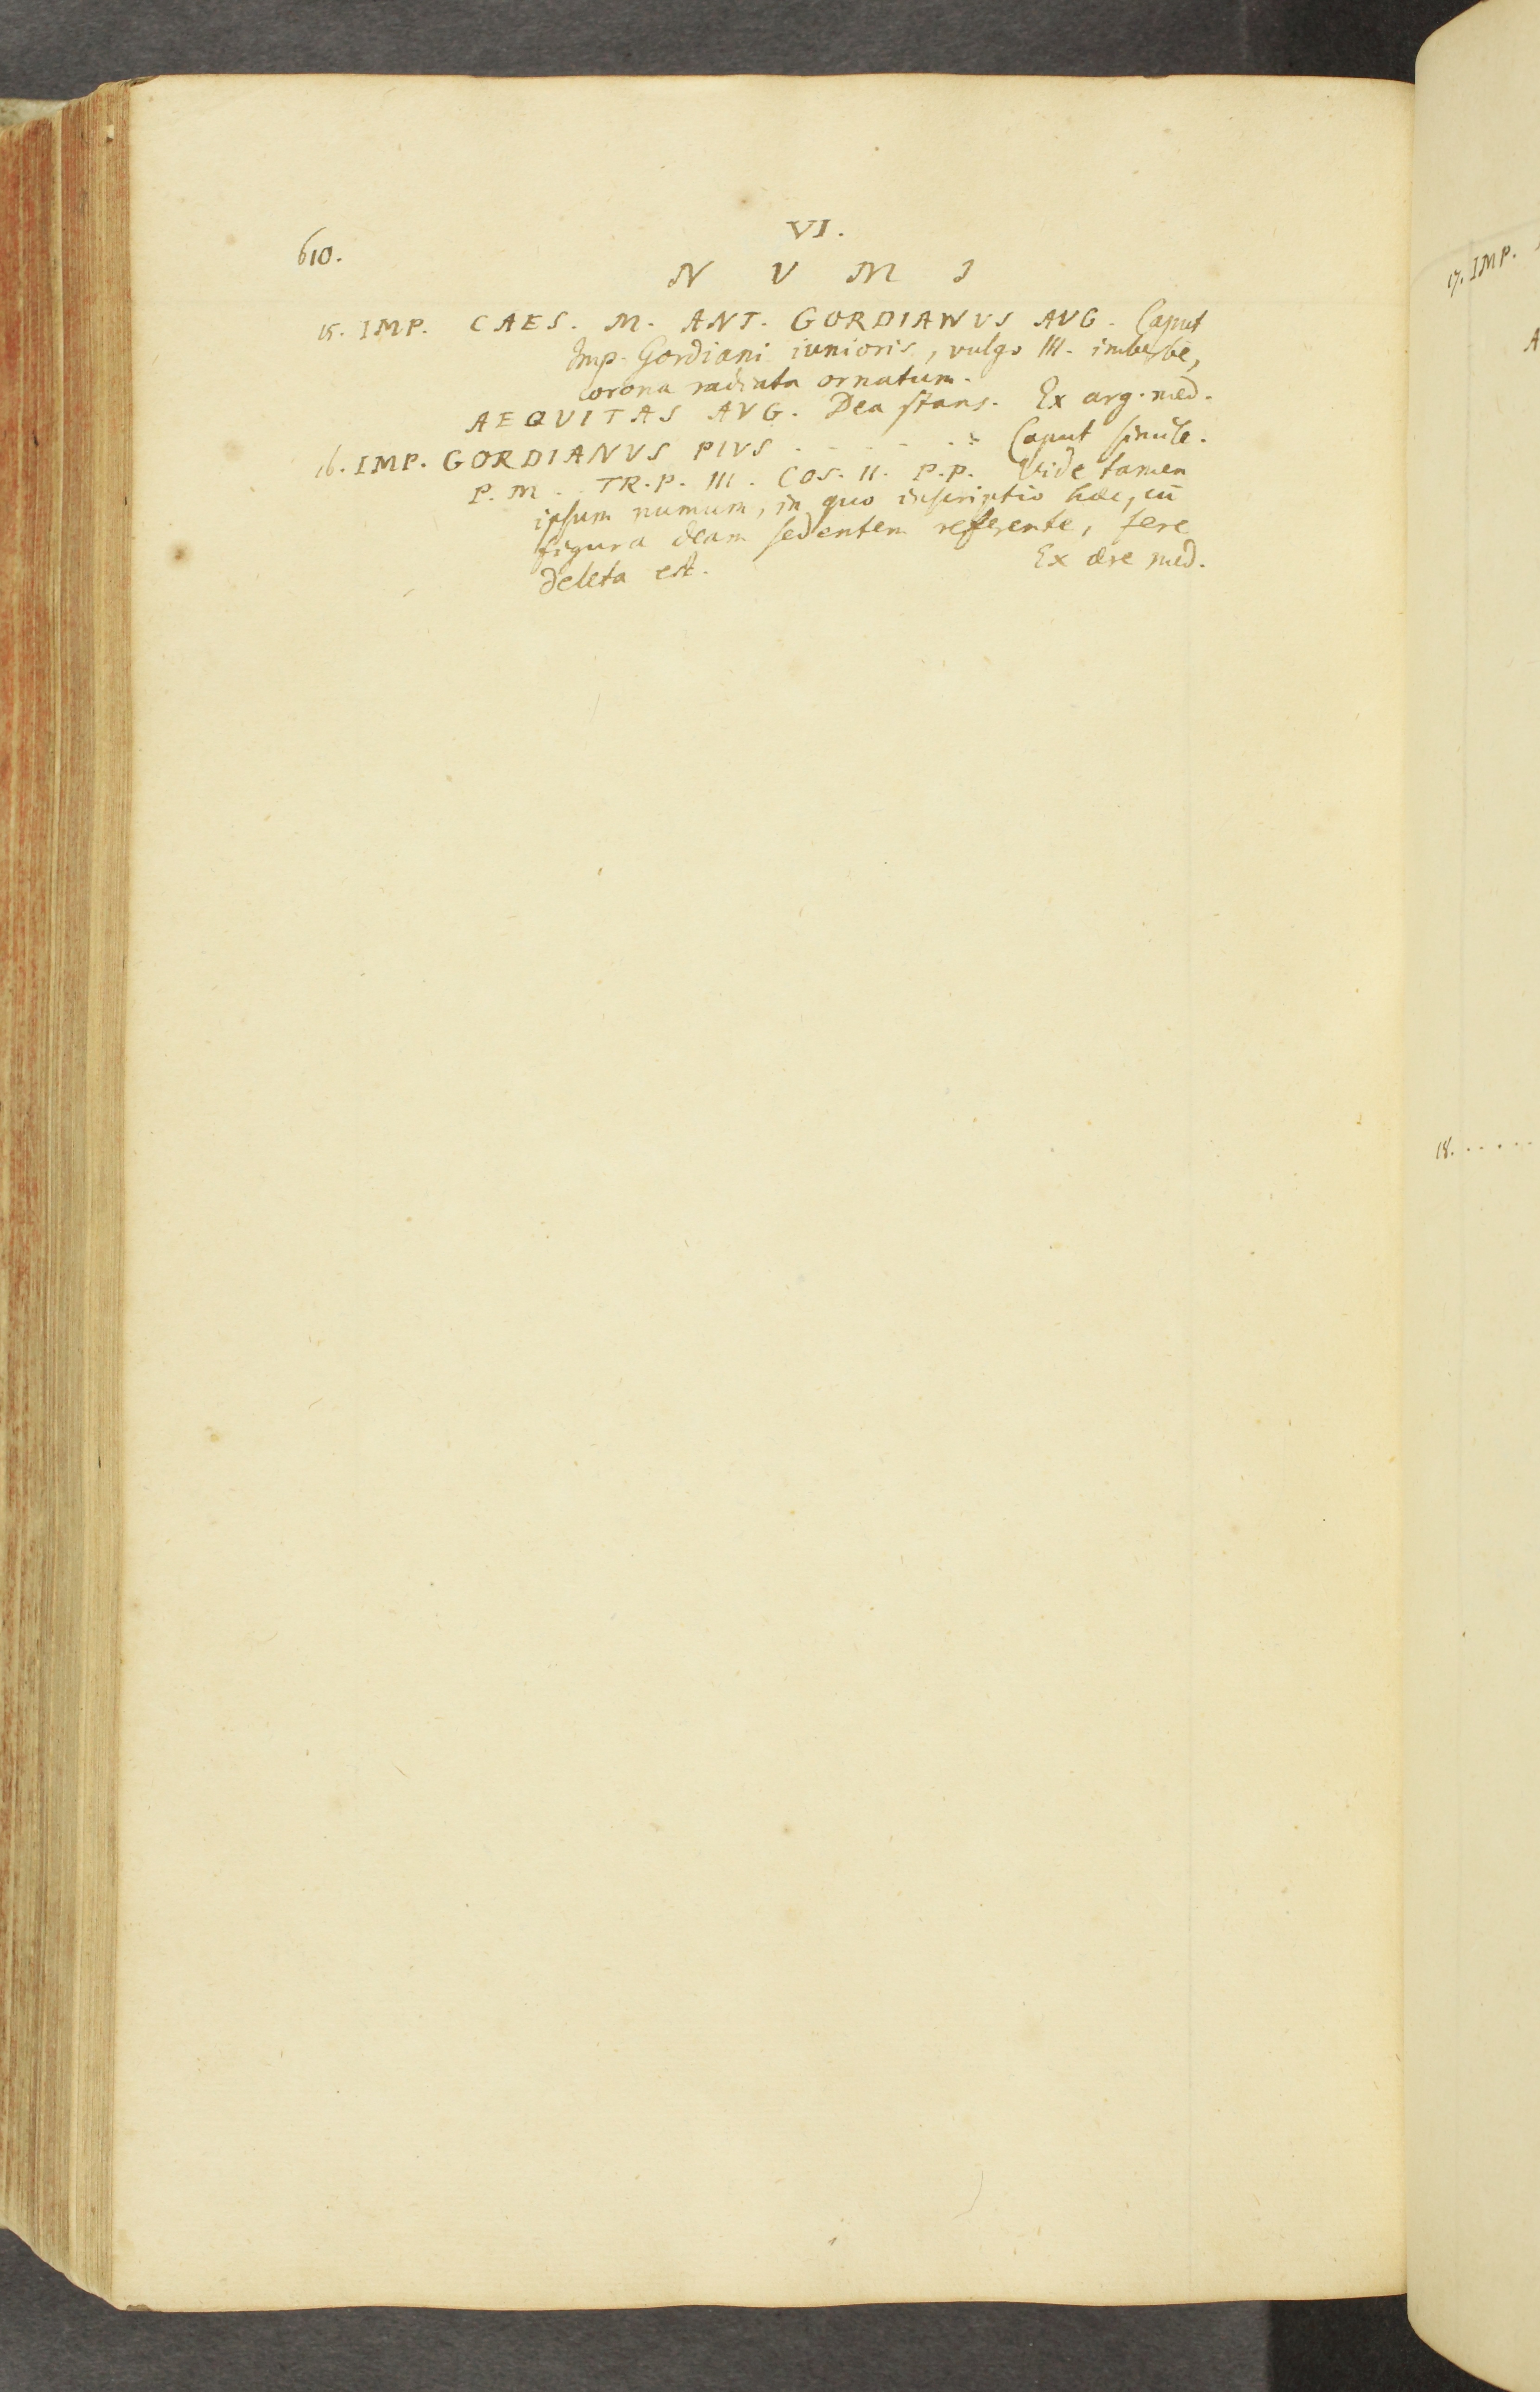 VI.
610.
N U M I
15. IMP. CAES. M. ANT. GORDIANVS AVG. Caput
Imp. Gordiani iunioris, vulgo III. imberbe,
corona radiata ornatum.
AEQVITAS AVG. Dea stans. Ex arg. med.
16. IMP. GORDIANVS PIVS . - - - - - Caput simile.
P. M. TR. P. III. COS. II. P. P. Vide tamen
ipsum numum, in quo inscriptio haec, cū
figura deam sedentem referente, fere
deleta est. Ex aere med.
17. IMP.
A
18. . . . . .